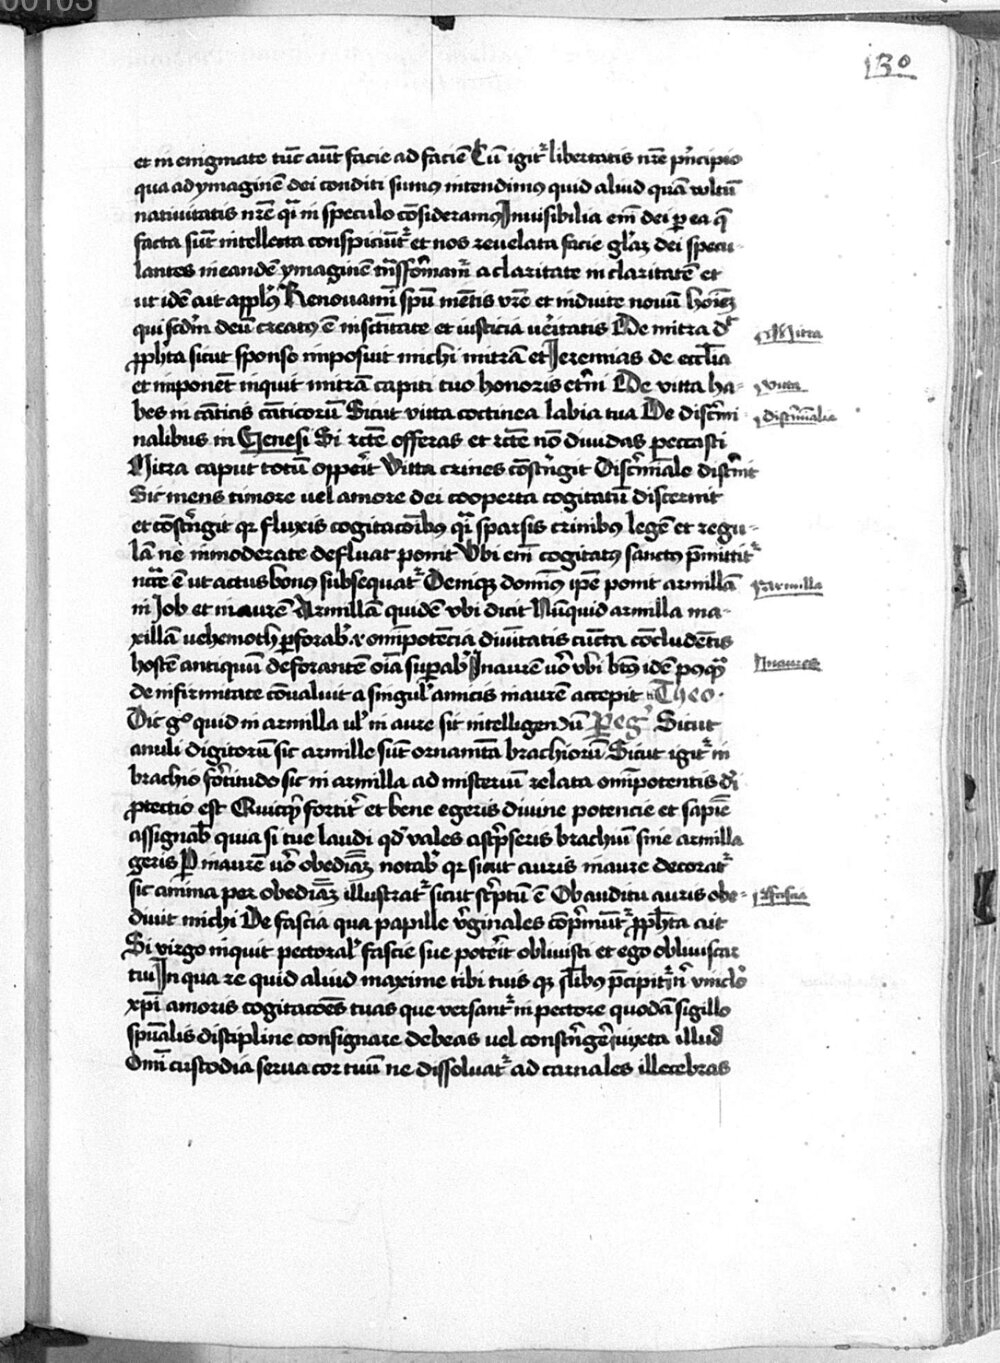 00103
130
et in enigmate tūc aūt facie ad faciē Cū igit libertatis nr̄e pn̄cipio
qua ad ymaginē dei conditi sumus intendimus quid aliud quā vultū
nativitatis nr̄e qͣi in speculo cōsideramus Invisibilia em̄ dei p ea q̄
facta sūt intellecta conspiciūt et nos revelata facie glaz dei specu-
lantes in eandē ymaginē tn̄sformam̄ a claritate in claritatē et
ut idē ait applus Renovamī spū mētis vr̄e et induite novū hoiez
qui scdm̄ deū creatus ē in sctitate et iusticia veritatis De mitra dr
pph̄ta sicut sponso imposuit michi mitrā et Jeremias de eccl̄ia
et imponet inquit mitrā capiti tuo honoris etn̄i De vitta ha-
bes in cāticis cāticorū Sicut vitta coctinea labia tua De discri-
nalibus in Genesi Si rcte offeras et rcte nō dividas peccasti
Mitra caput totū opperit Vitta crines cōstrīgit Discrīale discrīit
Sic mens timore vel amore dei cooperta cogitatū discernit
et cōstrīgit qr fluxis cogitacōibus qͣi sparsis crinibus legē et regu-
lā ne inmoderate defluat ponit Ubi em̄ cogitatus sanctus p̄mittit
ncc̄e ē ut actus bonus subsequat Deniqz dominus ipe ponit armillā
in Job et in aurē Armillā quidē ubi dicit Nūquid armilla ma-
xillā vehemoth pforab' .i. omīpotēcia divītatis cūcta cōcludētis
hostē antiquū deforantē oīa supab' In aurē vo ubi bt̄us idē posqͣ
de infirmitate cōvaluit a singul' amicis in aurē accepit Theo.
Dic go quid in armilla vl' in aure sit intelligendū Pereg' Sicut
anuli digitorū sic armille sūt ornamēta brachiorū Sicut igit in
brachio fortitudo sic in armilla ad misteriū relata omīpotentis di
ptectio est Quicqͥd fortit et bene egeris divine potencie et sapie
assignab quia si tue laudi qd vales ascpseris brachiū sine armilla
geris P in aurē vo obediāz notab' qr sicut auris in aure decorat
sic anima per obediāz illustrat sicut scptū ē Ob auditu auris obe-
divit michi De fascia qua papille vginales cōprimūt pph̄ta ait
Si virgo inquit pectoral' fascie sue poterit oblivisti et ego obliviscar
tui In qua re quid aliud maxime tibi tuis qz
xp̄i amoris cogitacōes tuas que versant in pectore quodā sigillo
spūalis discipline consignare debeas vel constrīgere iuxta illud
Omī custodia serva cor tuū ne dissolvat ad carnales illecebras
Mitra
vitta
discrīnalia
Armilla
Inaures
fascia